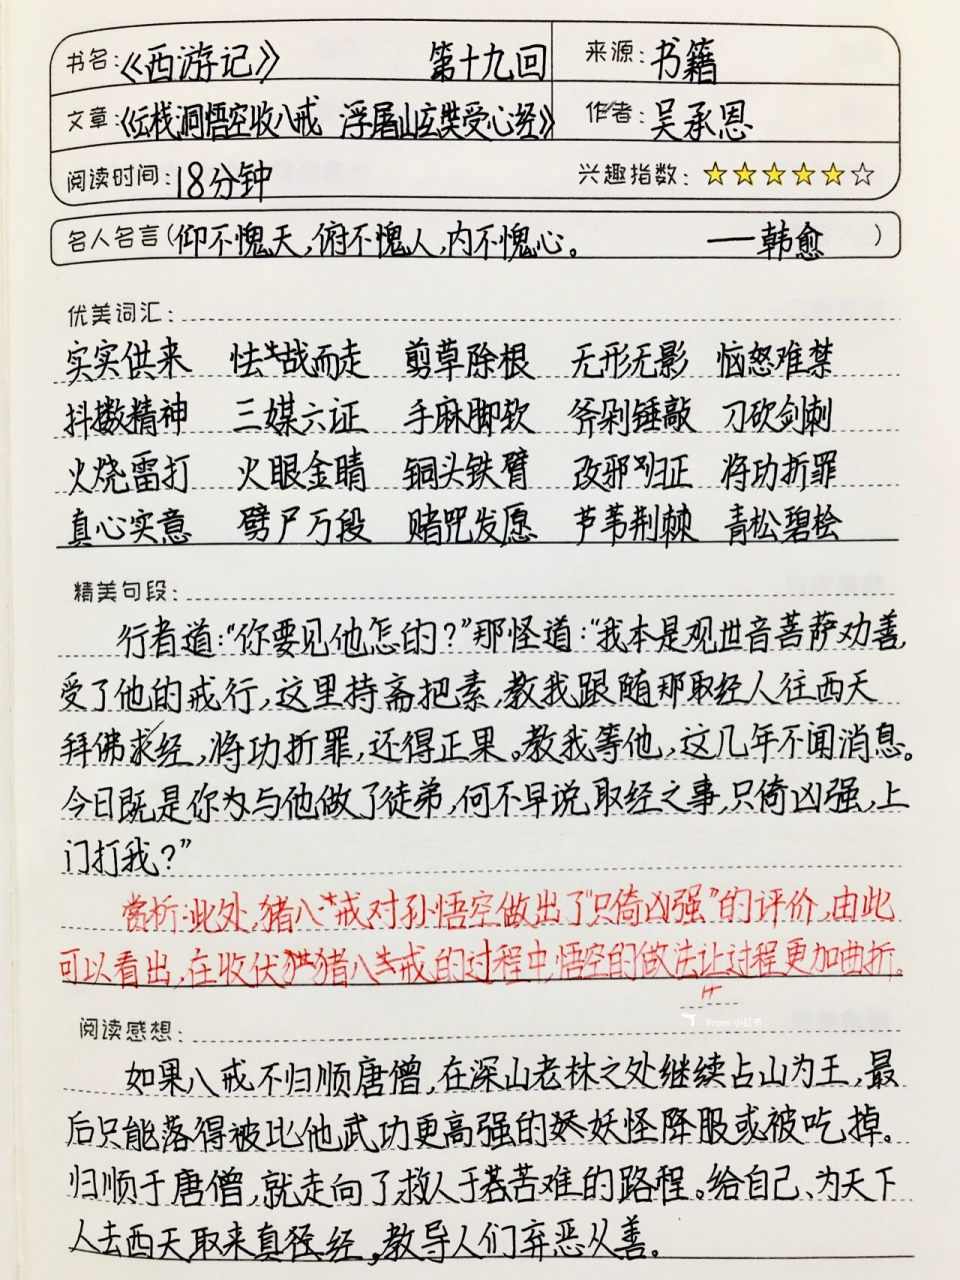 书名:《西游记》 第十九回 来源:书籍
文章:《云栈洞悟空收八戒 浮屠山玄奘受心经》 作者:吴承恩
阅读时间:18分钟 兴趣指数:★★★★★☆
名人名言(仰不愧天,俯不愧人,内不愧心。 ——韩愈 )
优美词汇:
实实供来 怯战而走 剪草除根 无形无影 恼怒难禁
抖擞精神 三媒六证 手麻脚软 斧剁锤敲 刀砍剑刺
火烧雷打 火眼金睛 铜头铁臂 改邪归正 将功折罪
真心实意 劈尸万段 赌咒发愿 芦苇荆棘 青松碧桧
精美句段:
行者道:“你要见他怎的?”那怪道:“我本是观世音菩萨劝善,
受了他的戒行,这里持斋把素,教我跟随那取经人往西天
拜佛求经,将功折罪,还得正果。教我等他,这几年不闻消息。
今日既是你与他做了徒弟,何不早说取经之事,只倚凶强,上
门打我?”
赏析:此处,猪八戒对孙悟空做出了“只倚凶强”的评价,由此
可以看出,在收伏猪八戒的过程中,悟空的做法让过程更加曲折。
From 小红书
阅读感想:
如果八戒不归顺唐僧,在深山老林之处继续占山为王,最
后只能落得被比他武功更高强的妖怪降服或被吃掉。
归顺于唐僧,就走向了救人于苦难的路程。给自己、为天下
人去西天取来真经,教导人们弃恶从善。